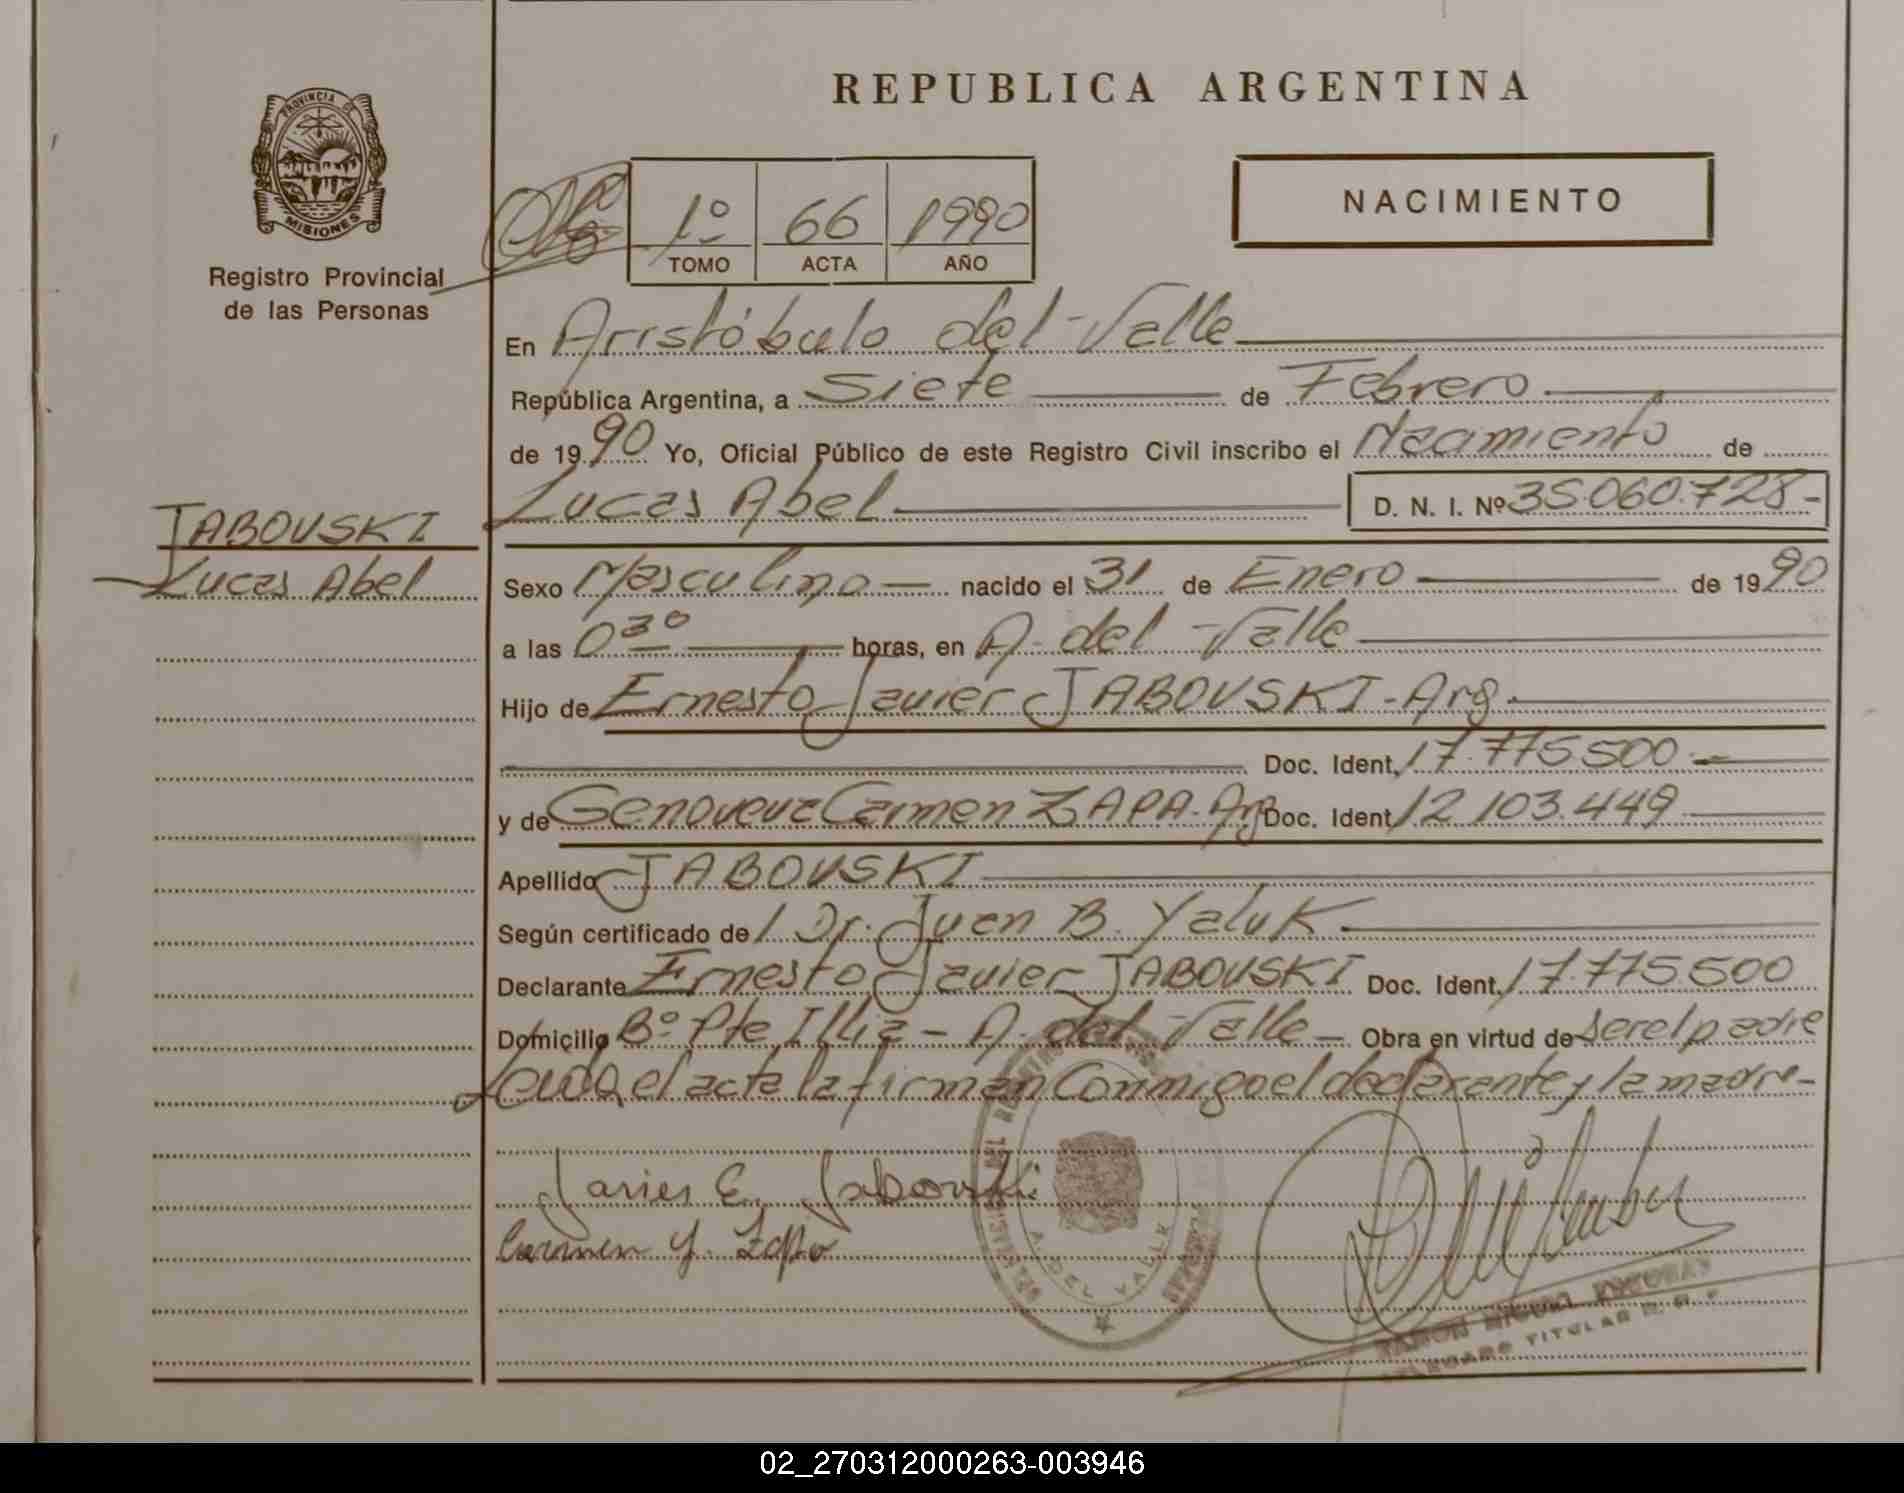 REPUBLICA ARGENTINA
PROVINCIA DE
MISIONES
Registro Provincial
de las Personas
1º 66 1990
TOMO ACTA AÑO
NACIMIENTO
En Aristóbulo del Valle
República Argentina, a Siete de Febrero
de 1990 Yo, Oficial Público de este Registro Civil inscribo el Nacimiento de
Lucas Abel D. N. I. Nº 35.060.728-
JABOVSKI
Lucas Abel
Sexo Masculino nacido el 31 de Enero de 1990
a las 0 30 horas, en A. del Valle
Hijo de Ernesto Javier JABOVSKI - Arg.
Doc. Ident. 17.775.500
y de Genoveva Carmen ZAPA - Arg Doc. Ident. 12.103.449
Apellido JABOVSKI
Según certificado de l Dr. Juan B. Yaluk
Declarante Ernesto Javier JABOVSKI Doc. Ident. 17.775.500
Domicilio Bº Pte Illia - A. del Valle - Obra en virtud de ser el padre
Leida el acta la firman conmigo el declarante y la madre-
Javier E. Jabovski
Carmen G. Zapa
A. DEL VALLE
TITULAR
02_270312000263-003946